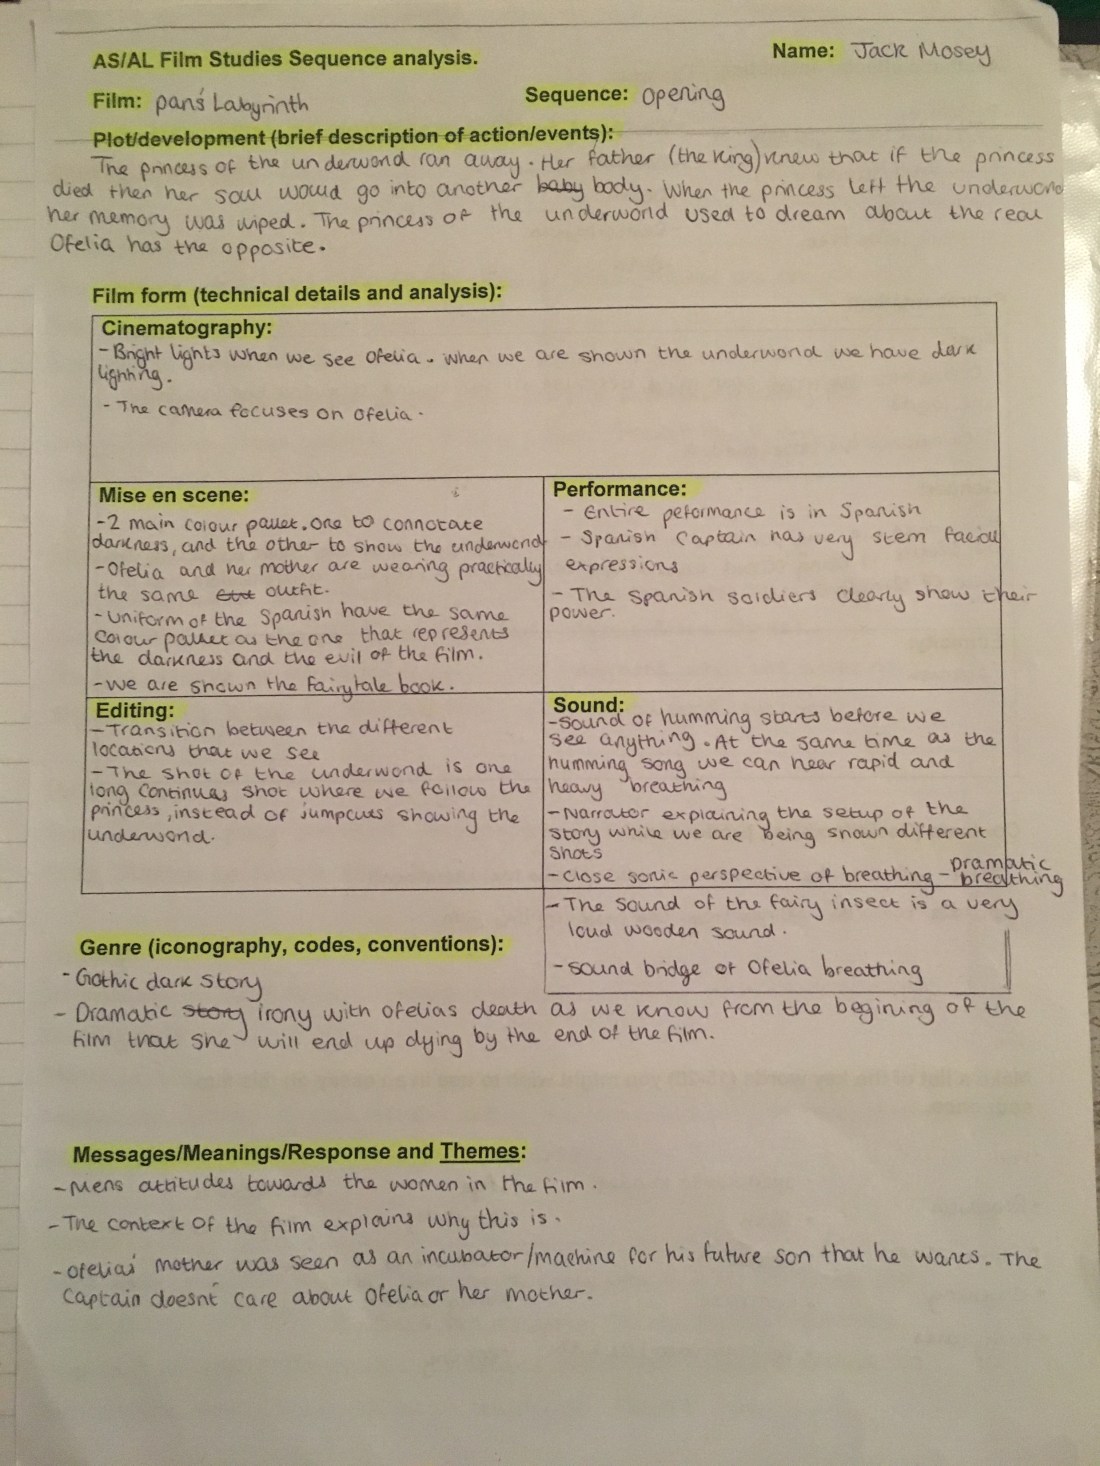 AS/AL Film Studies Sequence analysis.
Name: Jack Mosey
Film: pan's Labyrinth
Sequence: opening
Plot/development (brief description of action/events):
The princess of the underworld ran away. Her father (the king) knew that if the princess
died then her soul would go into another baby body. When the princess left the underworld
her memory was wiped. The princess of the underworld used to dream about the real
Ofelia has the opposite.
Film form (technical details and analysis):
Cinematography:
- Bright lights when we see Ofelia. When we are shown the underworld we have dark
lighting.
- The camera focuses on Ofelia.
Mise en scene:
- 2 main colour pallet. One to connotate
darkness, and the other to show the underworld
- Ofelia and her mother are wearing practically
the same outfit.
- Uniform of the Spanish have the same
colour pallet as the one that represents
the darkness and the evil of the film.
- we are shown the fairytale book.
Performance:
- Entire peformance is in Spanish
- Spanish Captain has very stern facial
expressions
- The Spanish soldiers clearly show their
power.
Editing:
- Transition between the different
locations that we see
- The shot of the underworld is one
long continues shot where we follow the
princess, instead of jumpcuts showing the
underworld.
Sound:
- Sound of humming starts before we
see anything. At the same time as the
humming song we can hear rapid and
heavy breathing
- Narrator explaining the setup of the
story while we are being shown different
shots
- Close sonic perspective of breathing - Dramatic
breathing
- The sound of the fairy insect is a very
loud wooden sound.
- Sound bridge of Ofelia breathing
Genre (iconography, codes, conventions):
- Gothic dark story
- Dramatic story irony with ofelias death as we know from the begining of the
film that she will end up dying by the end of the film.
Messages/Meanings/Response and Themes:
- Mens attitudes towards the women in the film.
- The context of the film explains why this is.
- Ofelias' mother was seen as an incubator/machine for his future son that he wants. The
Captain doesn't care about Ofelia or her mother.